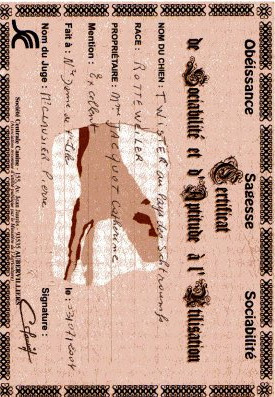 Obéissance Sagesse Sociabilité
Certificat
de Sociabilité et d'Aptitude à l'Utilisation
NOM DU CHIEN : TWISTER au Pays des Schtroumfs
RACE : ROTTEWEILER
PROPRIÉTAIRE : Mme JACQUOT Catherine
Mention : Excellent
Fait à : Nre Dame de le : 23/01/2004
Nom du Juge : Mr CLAUSIER Pierre Signature :
Société Centrale Canine - 155, Av. Jean Jaurès - 93535 AUBERVILLIERS